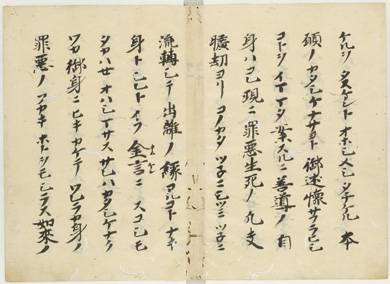 ケルヲタスケントオホシメシタチケル本
願ノカタシケナサヨト御述懐サフラヒシ
コトヲイママタ案スルニ善導ノ自
身ハコレ現ニ罪悪生死ノ凡夫
曠劫ヨリコノカタツ子ニシツミツ子ニ
流轉シテ出離ノ縁アルコトナキ
身トシレトイフ金言ニスコシモ
タカハセオハシマサスサレハカタシケナク
ワカ御身ニヒキカケテワレラカ身ノ
罪悪ノフカキホトヲモシラス如來ノ